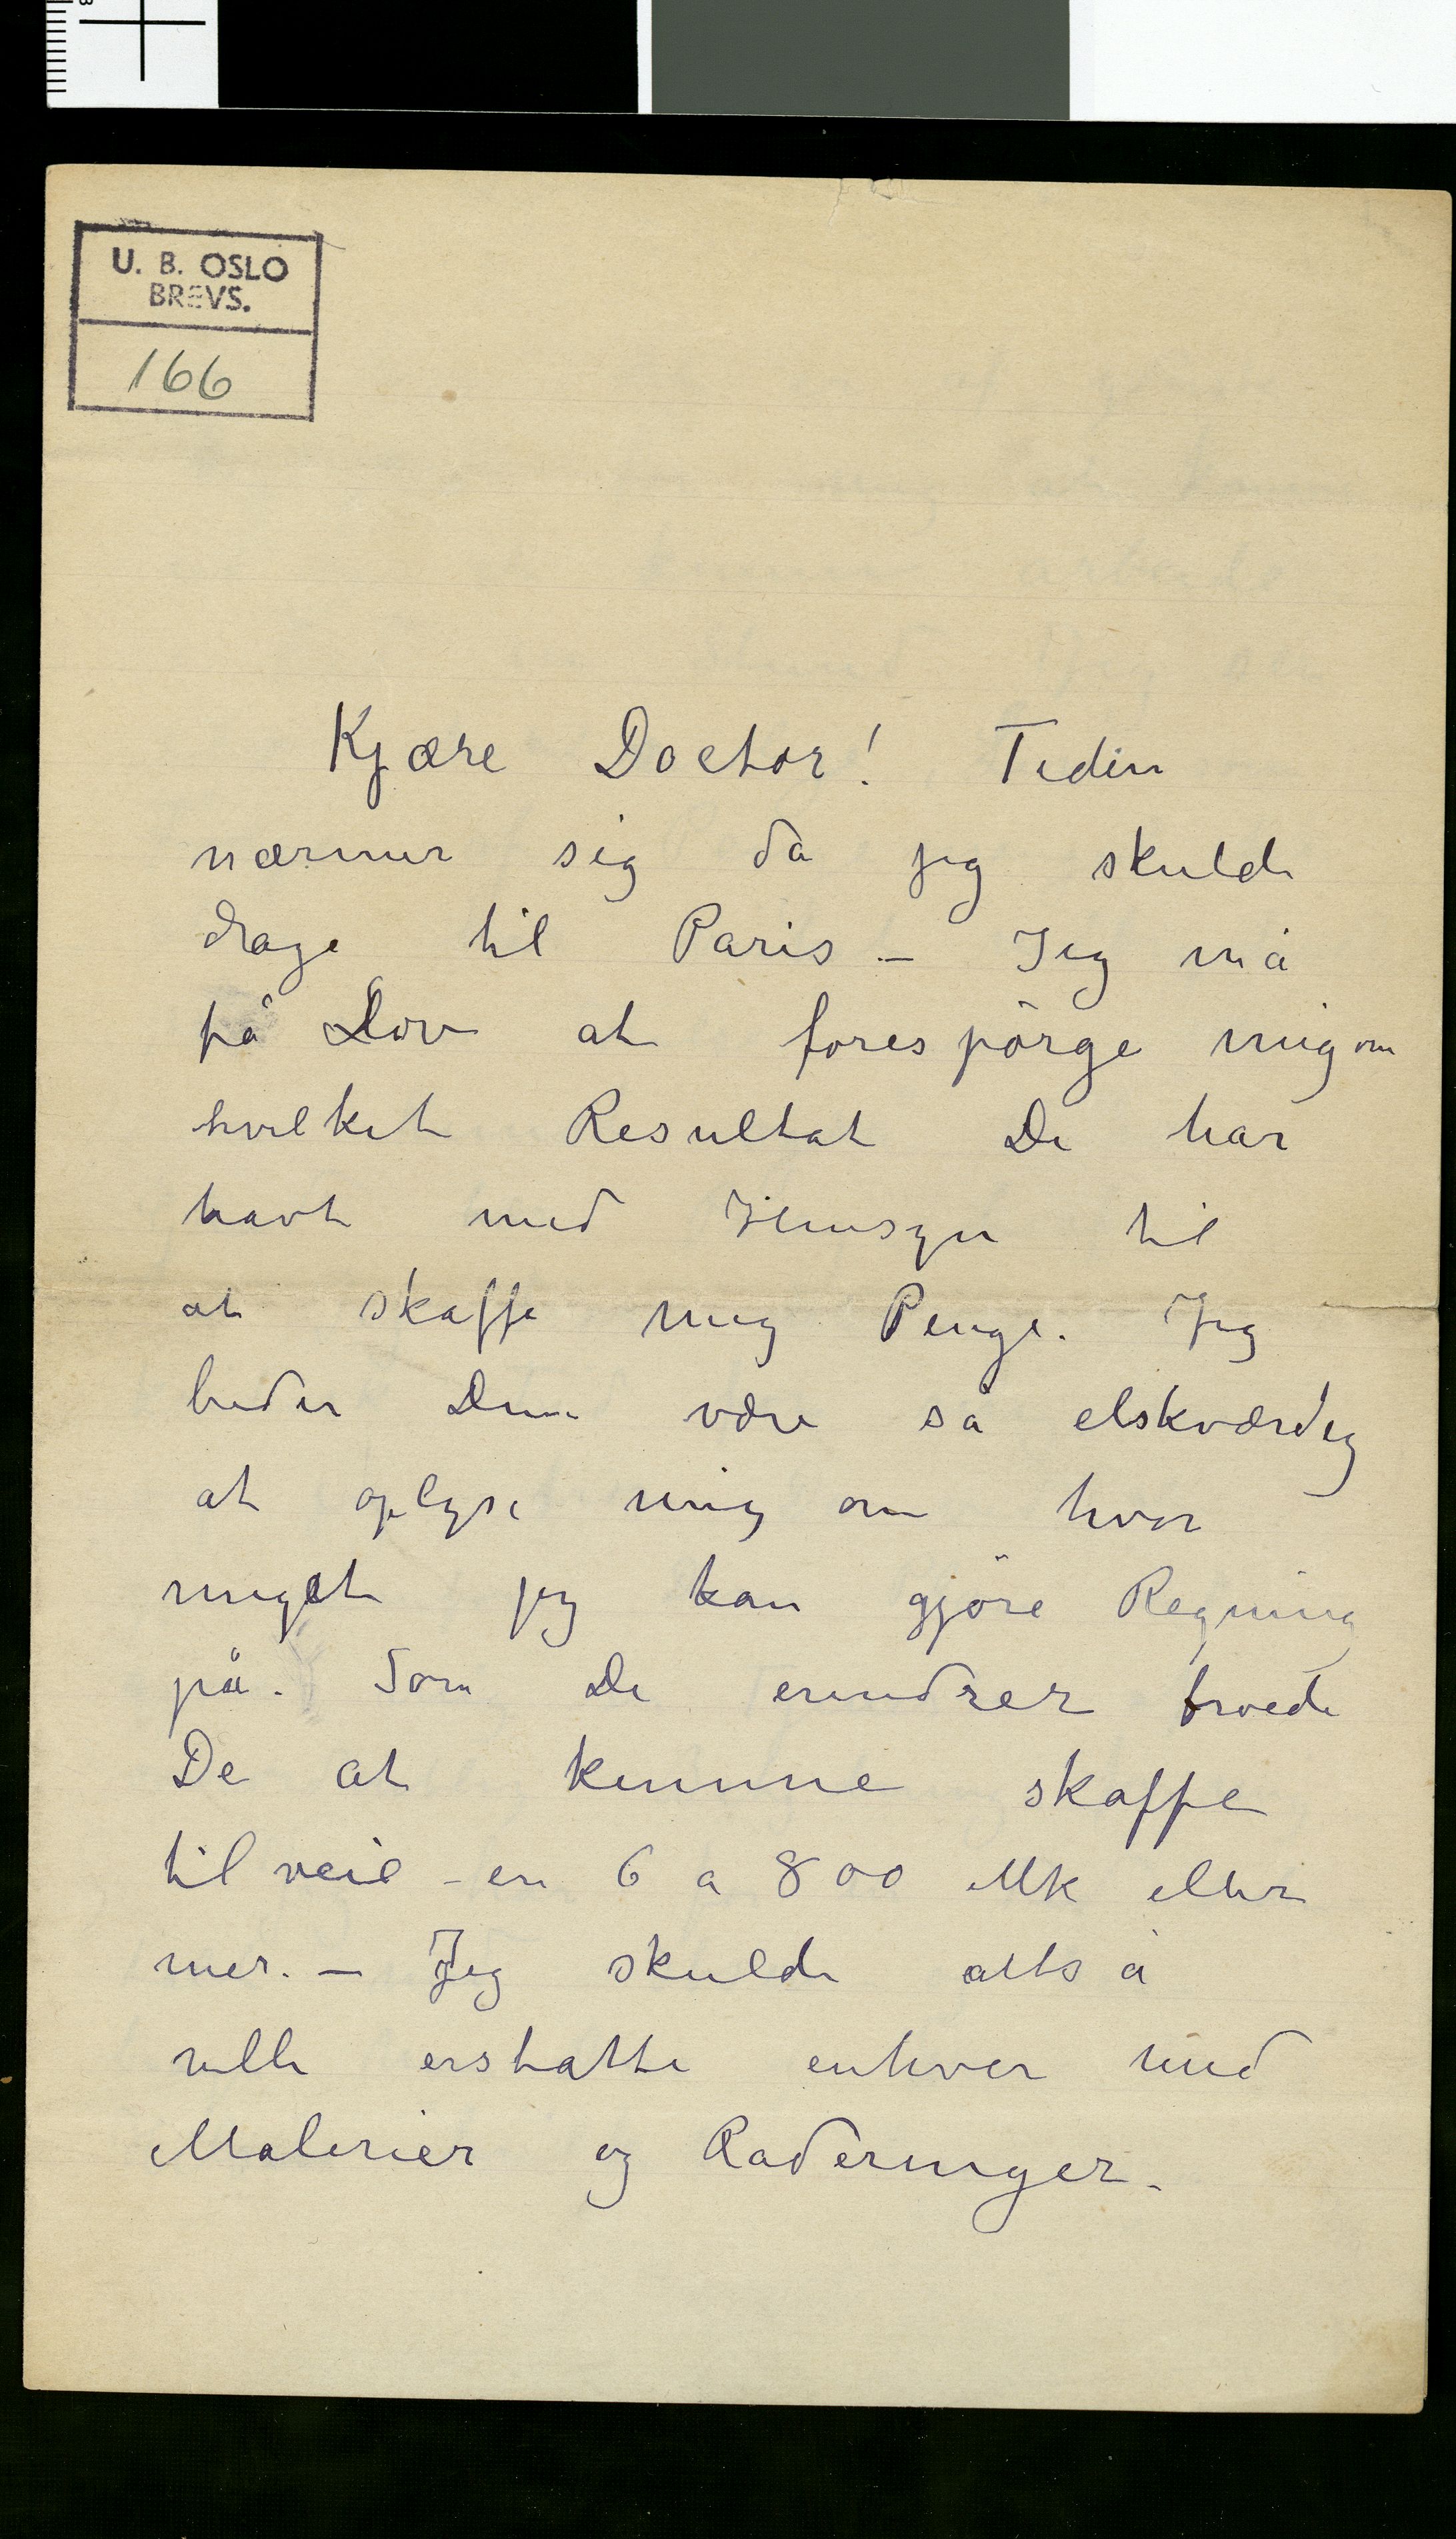 U. B. OSLO
BREVS.
166
Kjære Doctor! Tiden
nærmer sig da jeg skulde
drage til Paris – Jeg må
få Lov at forespörge mig om
hvilket Resultat De har
havt med Hensyn til
at skaffe mig Penge. Jeg
beder Dem være så elskværdig
at oplyse mig om hvor
meget jeg kan gjöre Regning
på. Som De erindrer troede
De at kunne skaffe
tilveie – en 6 a 800 Mk eller
mer. – Jeg skulde altså
ville erstatte enhver med
Malerier og Raderinger.